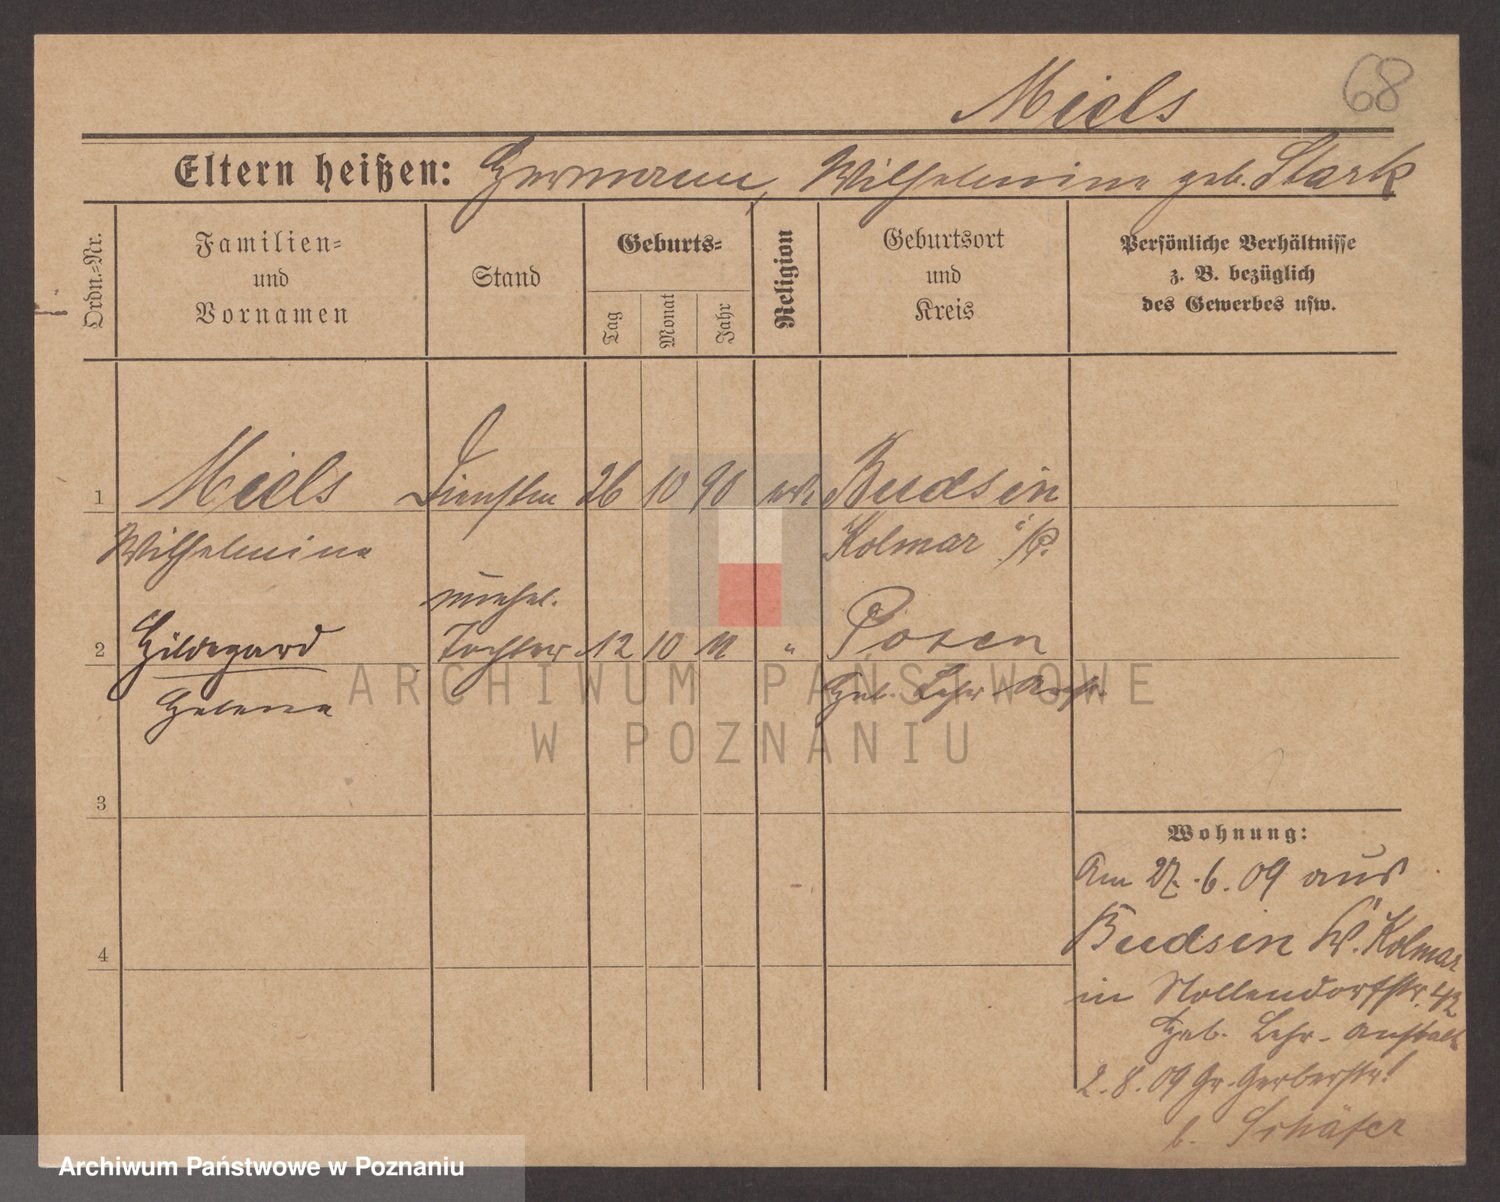 68
Miels
Eltern heißen: Hermann, Wilhelmine geb. Stark
Ordn.-Nr.
Familien- und Vornamen
Stand
Geburts-
Tag
Monat
Jahr
Religion
Geburtsort und Kreis
Persönliche Verhältnisse z. B. bezüglich des Gewerbes usw.
1 Miels Dienstm 26 10 90 Budsin
Wilhelmine Kolmar i/P.
unehel.
2 Hildegard Tochter 12 10 11 " Posen
Helene Heb. Lehr-Anst.
3
4
Wohnung:
Am 27.6.09 aus
Budsin Kr. Kolmar
in Nollendorfstr. 42
Heb. Lehr-Anstalt
2.8.09 Gr. Gerberstr.
b. Schäfer
ARCHIWUM PAŃSTWOWE
W POZNANIU
Archiwum Państwowe w Poznaniu